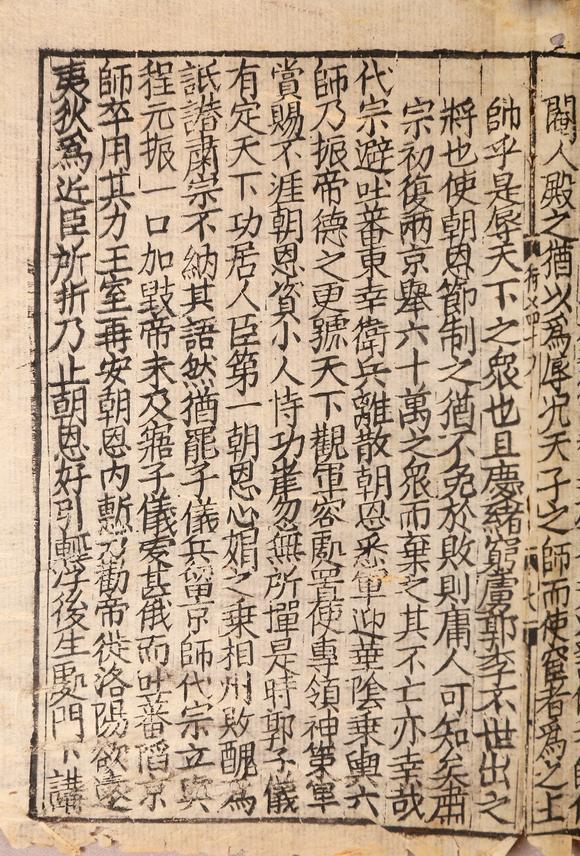 閹人殿之猶以為辱况天子之師而使宦者為之主
帥乎是辱天下之衆也且慶緒窮虜郭李不世出之
將也使朝恩節制之猶不免於敗則庸人可知矣肅
宗初復兩京舉六十萬之衆而棄之其不亡亦幸哉
代宗避吐蕃東幸衛兵離散朝恩悉軍迎華陰乗輿六
師乃振帝德之更號天下觀軍容處置使專領神策軍
賞賜不涯朝恩資小人恃功岸忽無所憚是時郭子儀
有定天下功居人臣第一朝恩心媢之乗相州敗醜為
詆譖肅宗不納其語然猶罷子儀兵留京師代宗立與
程元振一口加毀帝未及寤子儀憂甚俄而吐蕃陷京
師卒用其力王室再安朝恩内慙乃勸帝徙洛陽欲遠
夷狄為近臣所折乃止朝恩好引輕浮後生處門下講